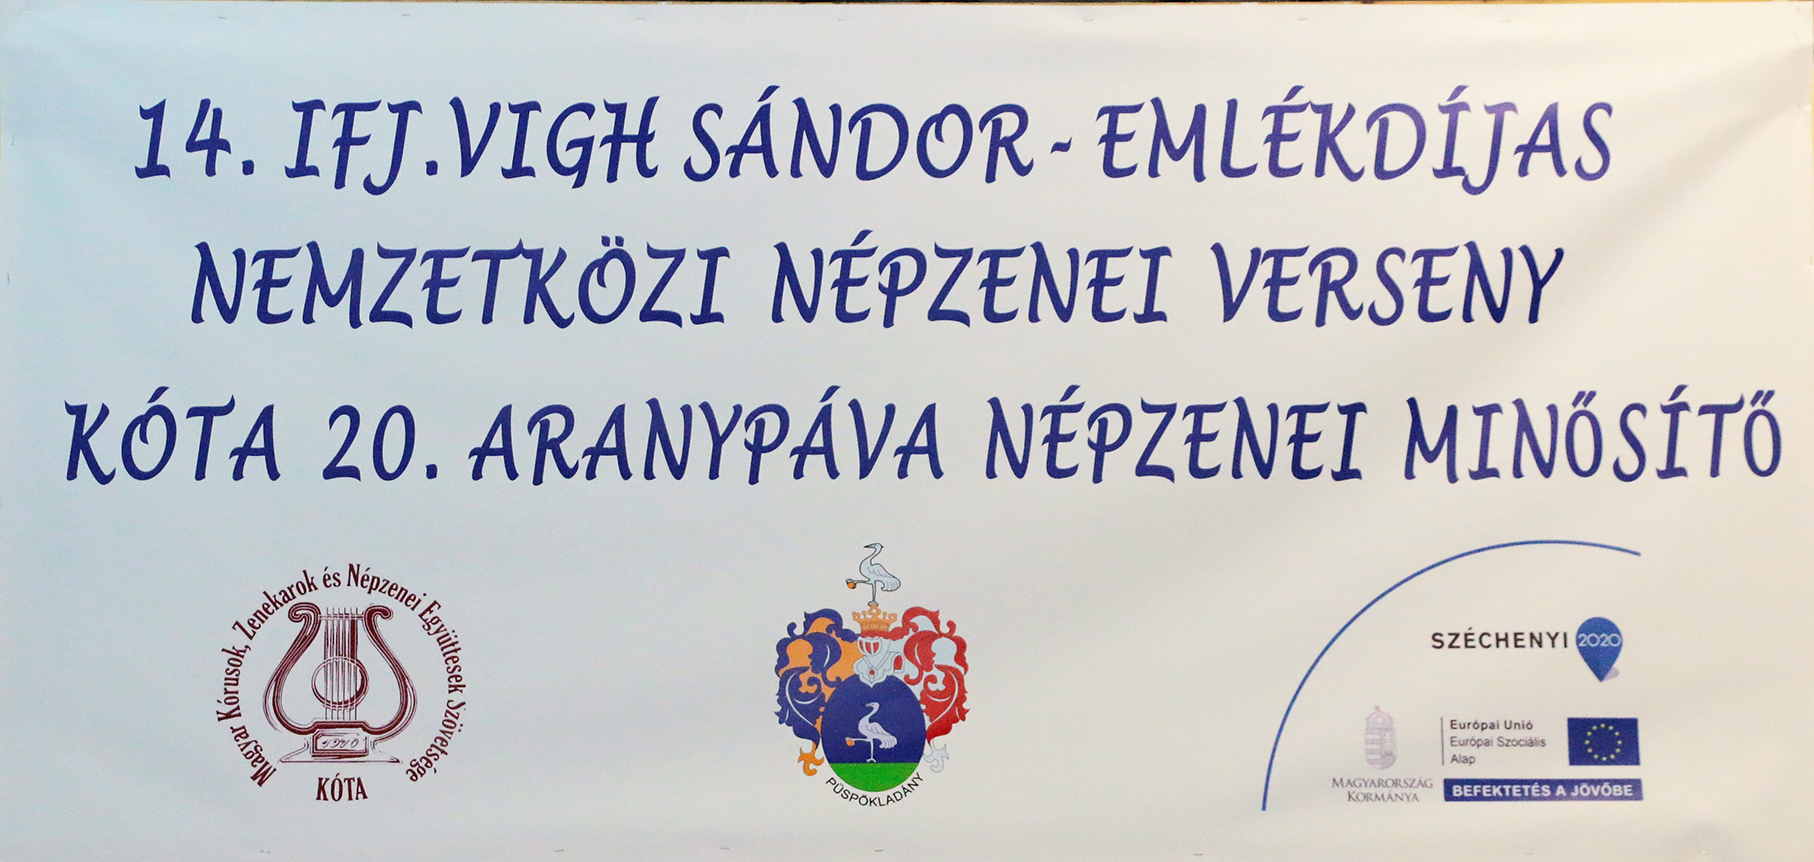 14. IFJ.VIGH SÁNDOR - EMLÉKDÍJAS
NEMZETKÖZI NÉPZENEI VERSENY
KÓTA 20. ARANYPÁVA NÉPZENEI MINŐSÍTŐ
Magyar Kórusok, Zenekarok és Népzenei Együttesek Szövetsége
1970
KÓTA
PÜSPÖKLADÁNY
SZÉCHENYI 2020
MAGYARORSZÁG
KORMÁNYA
Európai Unió
Európai Szociális
Alap
BEFEKTETÉS A JÖVŐBE